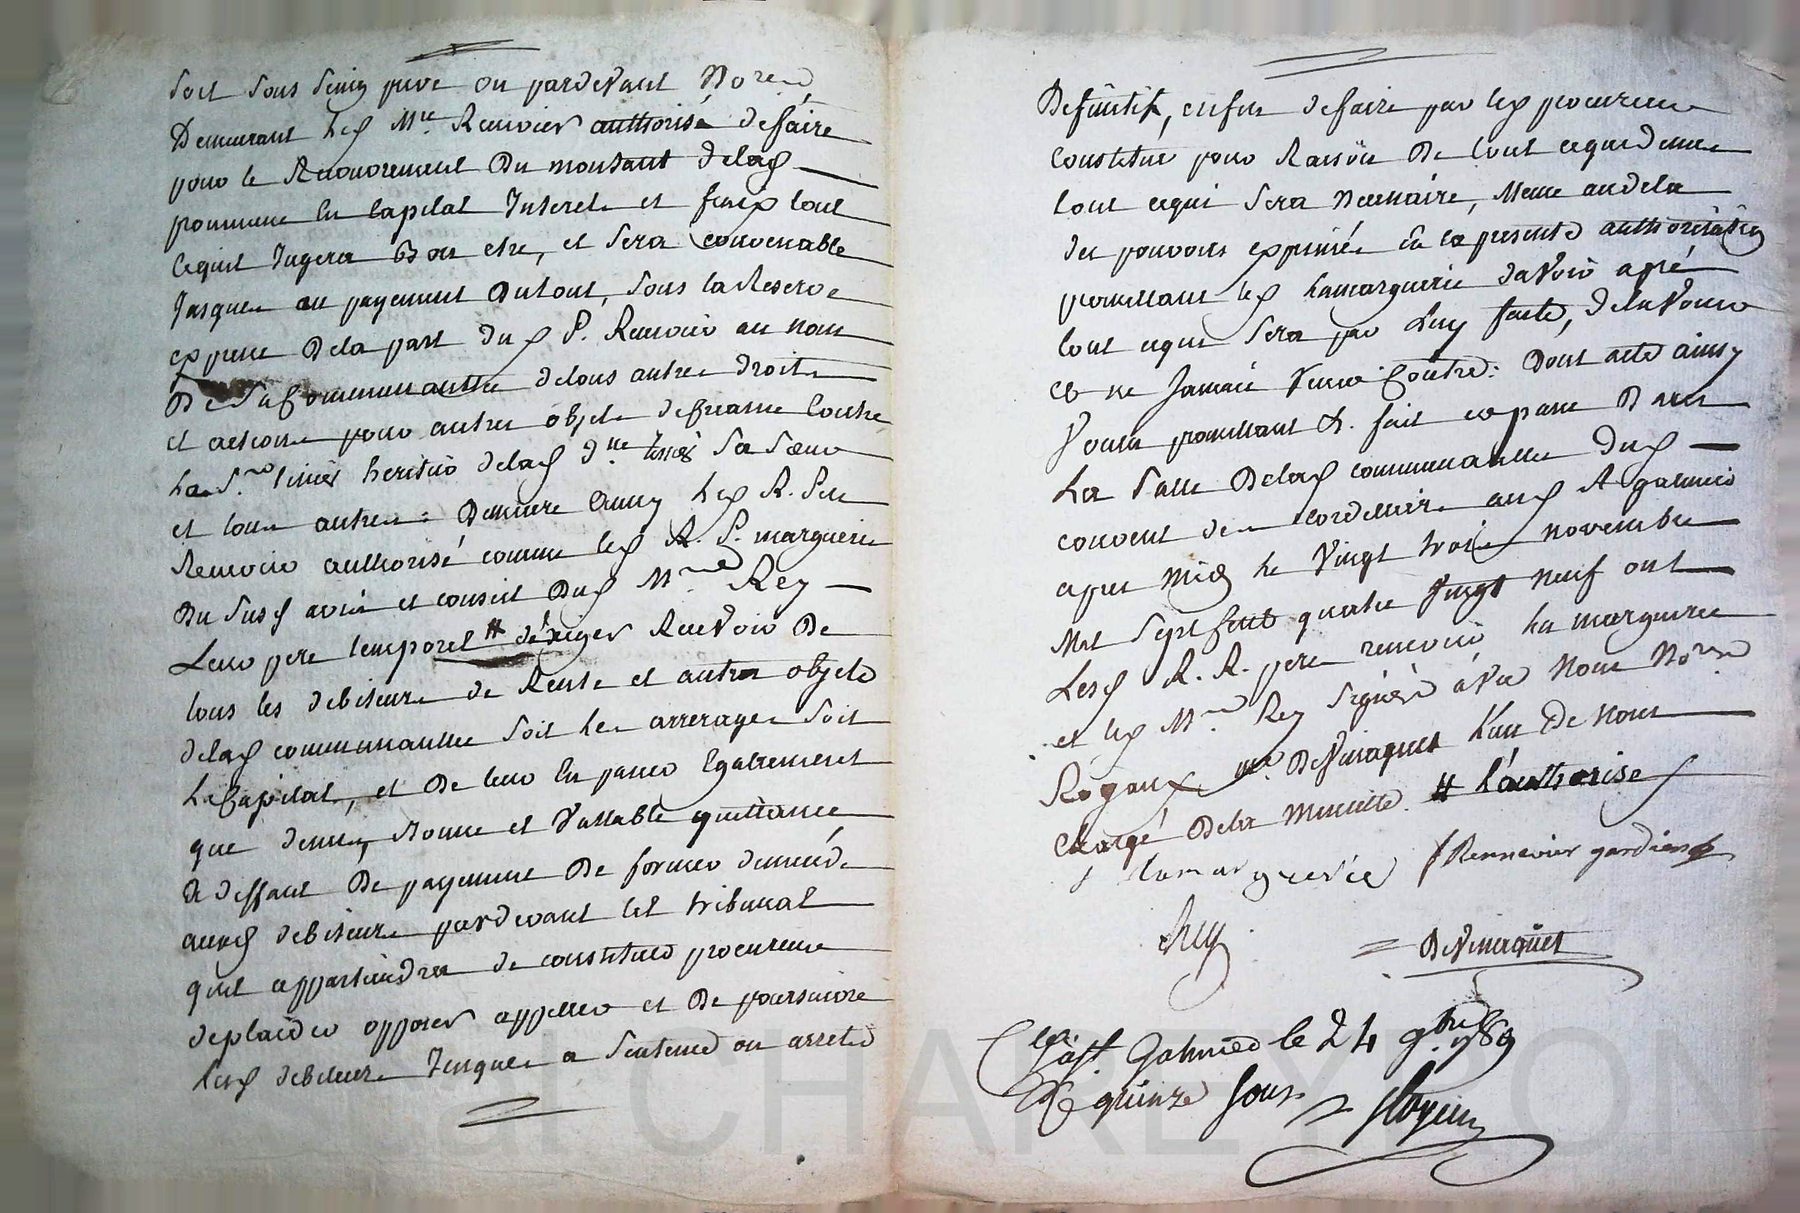 soit sous seing privé ou pardevant Nores
Demeurant led. Mre. Renevier authorisé de faire
pour le Recouvrement Du montant delad.
pour une En Capital Interets et fraix tout
cequil Jugera Bon etre, et sera convenable
Jusques au payement Du tout, sous la Reserve
expresse Dela part dud. P. Renevier au nom
De sa Communautté de tous autres droits
et actions pour autres objets de Creance Contre
La Sr. héritier delad. dlle. sa sœur
et tous autres: Demeure Encor led. R. Pere
Renevier authorisé comme led. R. P. marguerie
Du susd. avis et conseil Dud. Mre. Rey
Leur pere temporel # déxiger Recevoir De
tous les debiteurs de Rente et autres objets
delad. communautté soit les arrerages soit
Le Capital, et De leur En passer Egalement
que dessus, Bonne et Vallable quittance
A deffaut De payement De former demande
auxd. debiteurs pardevant tel tribunal
quil appartiendra de constituer procureurs
de plaider opposer appeller et De poursuivre
Lesd. debiteurs Jusques a Sentence ou arrets
Definitifs, enfin de faire par led. procureur
Constitué pour Raison De tout ceque dessus
tout cequi sera necessaire, Meme audela
des pouvoirs exprimés En la presente authorisation
promettant led. Lamarguerie davoir agréé
tout ceque sera par Luy faite, de lavouer
et ne Jamais Venir Contre: Dont acte ainsy
Voulu promettant &. fait et passé Dans
La Salle Delad. communautté Dud.
couvent des Cordeliers aud. St galmier
apres Midy le Vingt trois novembre
Mil Sept Cent quatre Vingt neuf ont
Lesd. R. R. peres renevier, Lamarguerie
et led. Mre. Rey signés avec Nous Nores
Royaux me. DeVinaquet L'un De nous
Chargé Dela Minutte. # L'authorise
f lamarguerie f Rennevier gardien
Rey DeVinaquet
Clé a st. Galmier le 24 9bre 1789
Rç quinze Sous